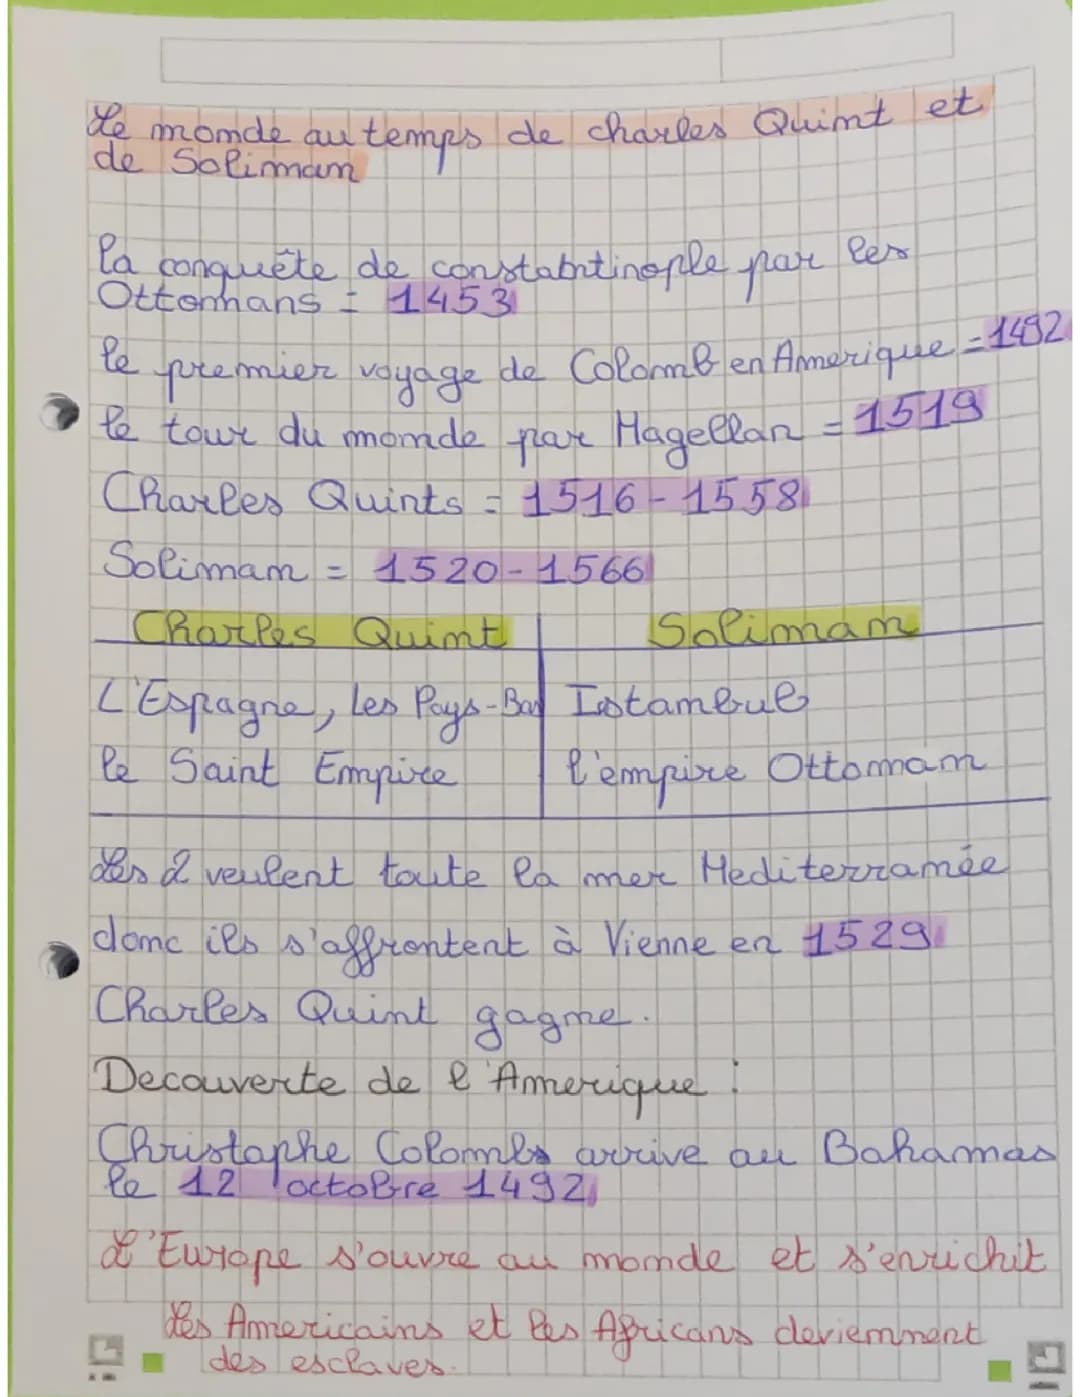 Le monde au temps de Charles Quint et
de Soliman
la conquête de constabntinople par les
Ottomans = 1453
le premier voyage de Colomb en Amerique = 1492
le tour du monde par Magellan = 1519
Charles Quints = 1516-1558
Soliman = 1520-1566
Charles Quint | Soliman
L'Espagne, les Pays-Bas | Istambul
le Saint Empire | l'empire Ottoman
Les 2 veulent toute la mer Mediterranée
donc ils s'affrontent à Vienne en 1529
Charles Quint gagne.
Decouverte de l'Amerique :
Christophe Colombs arrive au Bahamas
le 12 octobre 1492
L'Europe s'ouvre au monde et s'enrichit
Les Americains et les Africans deviennent
des esclaves.